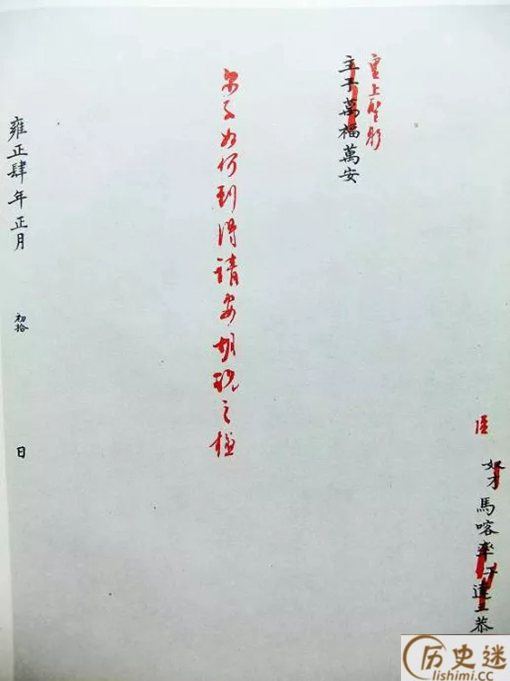 臣
奴才馬喀率子達三恭
皇上聖躬
主子萬福萬安
尔子为何到得請安胡說之極
雍正肆年正月初拾日
历史迷
lishimi.cc